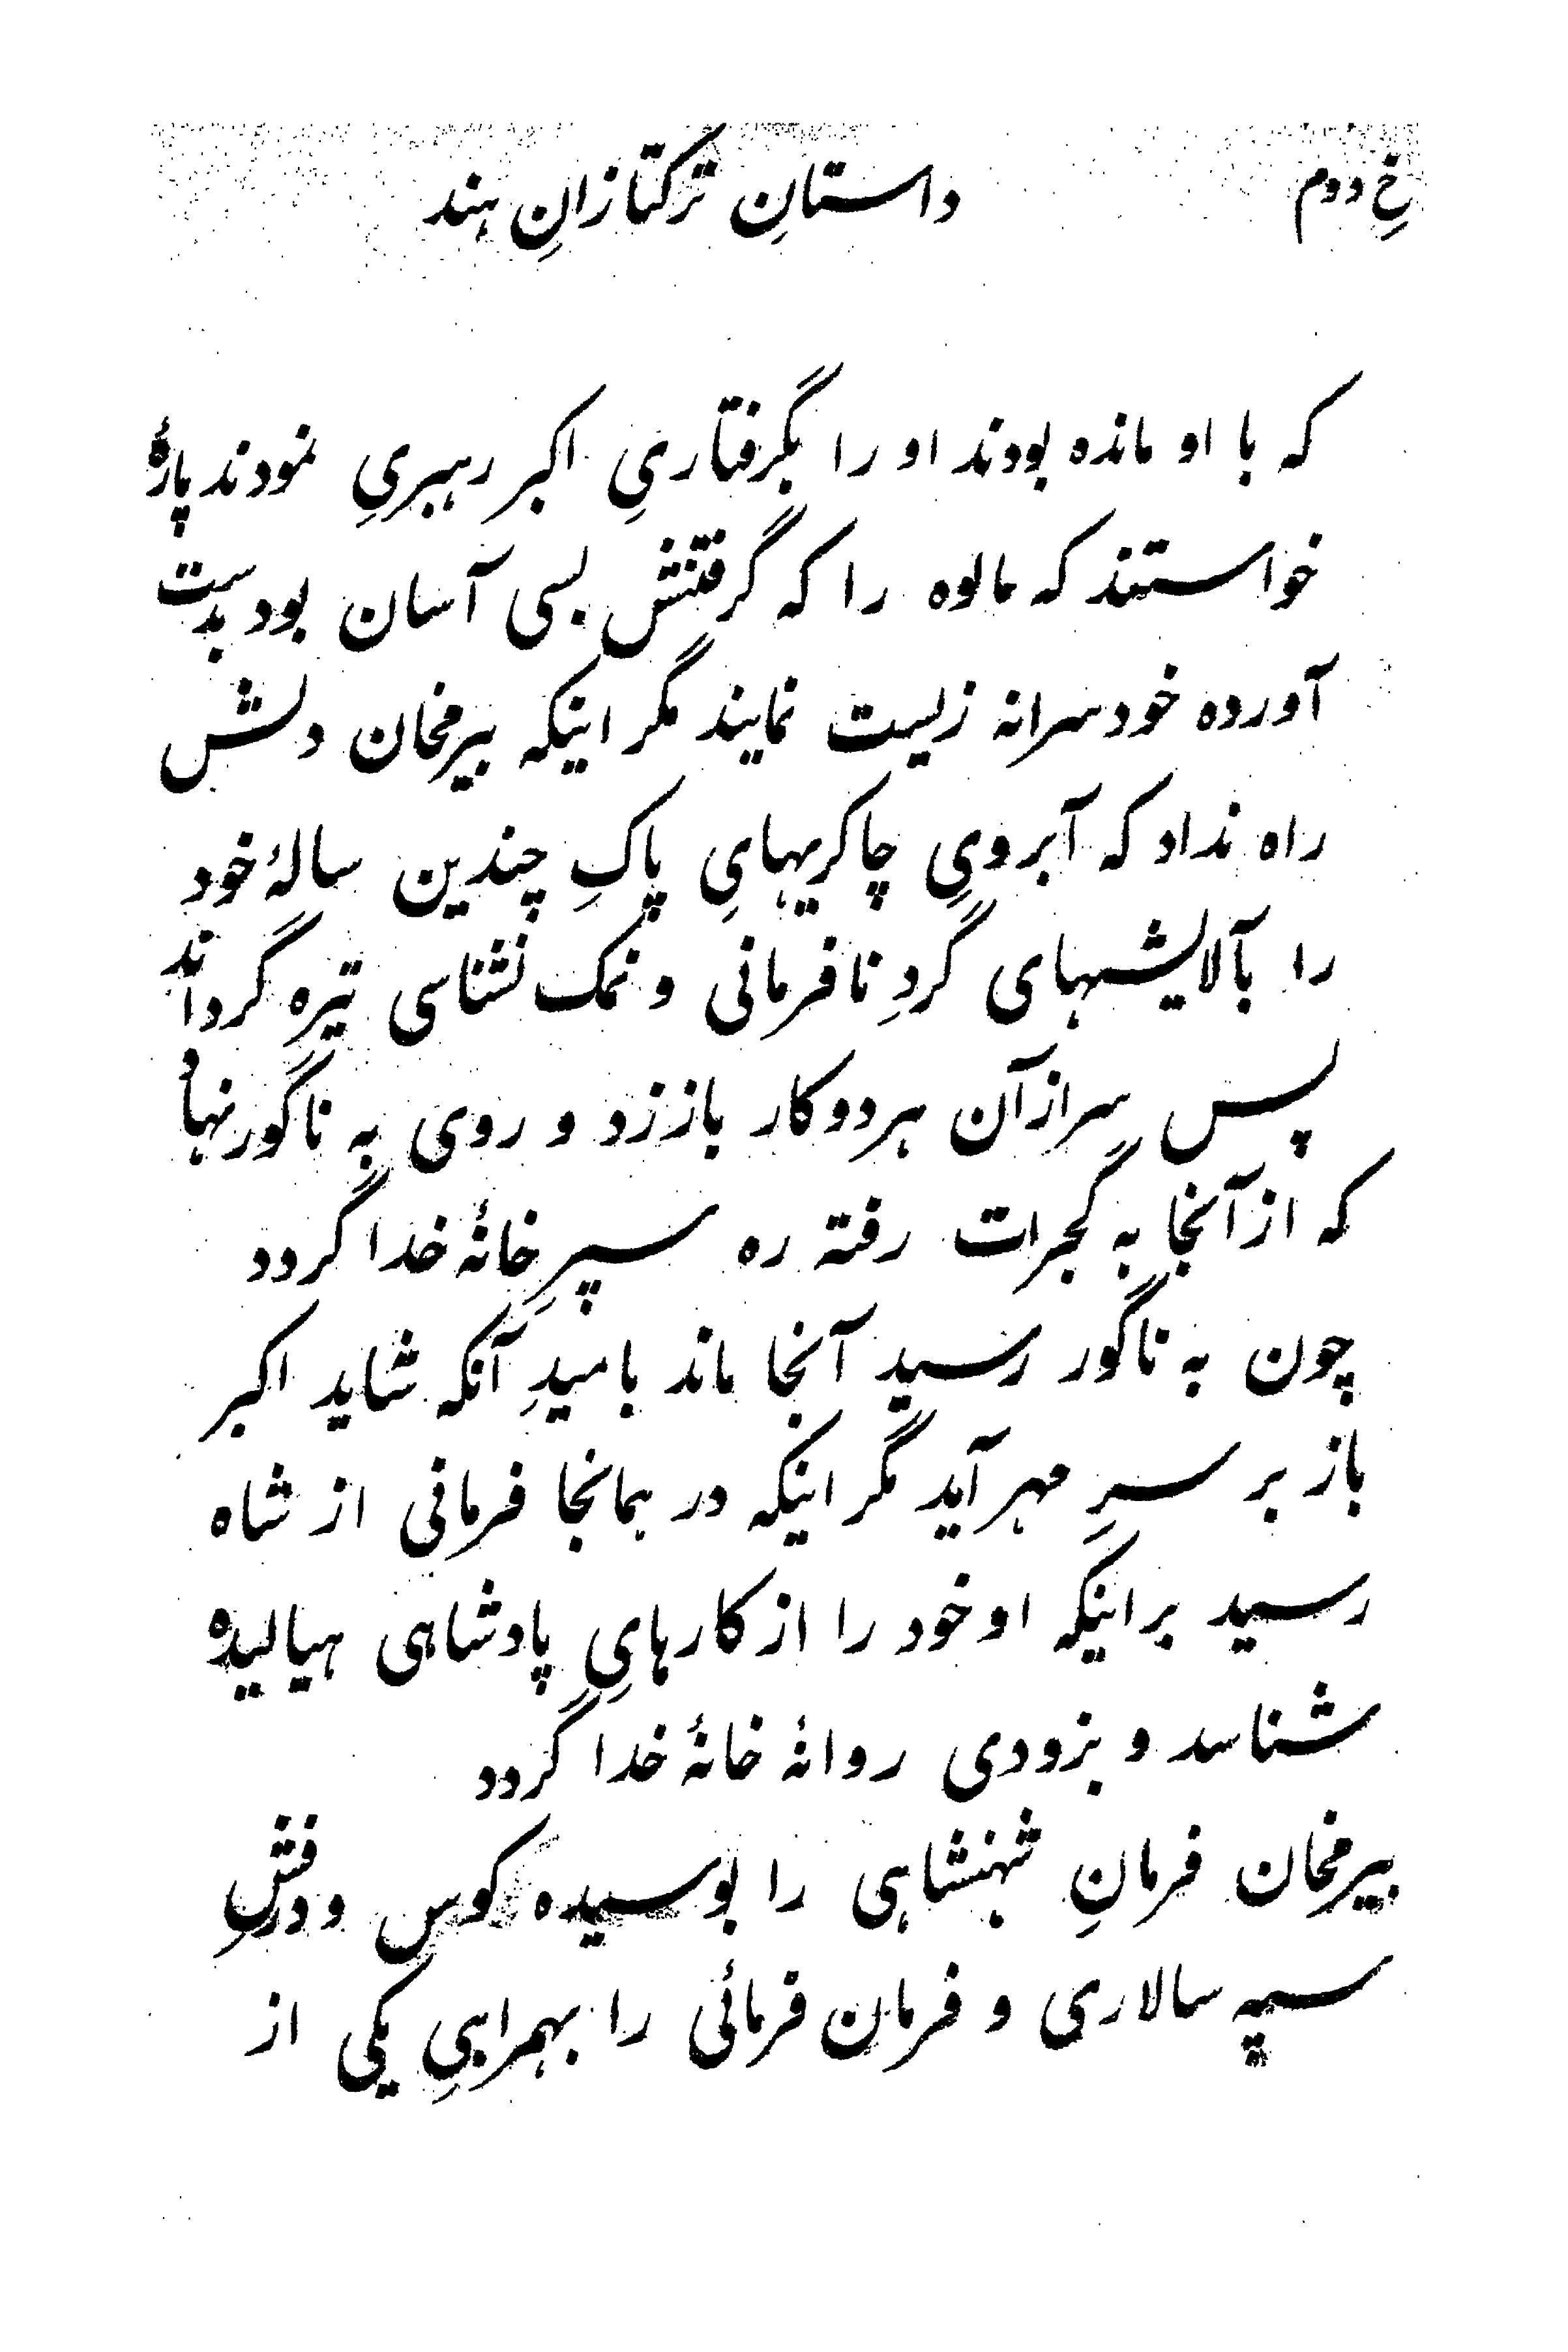 خِ دوم
داستانِ ترکتازانِ هند
که با او مانده بودند او را بگرفتاریِ اکبر رهبریِ نمودند پارهٔ
خواستند که مالوه را که گرفتنش بسی آسان بود بدست
آورده خودسرانه زیست نمایند مگر اینکه بیرمخان دلش
راه نداد که آبرویِ چاکریهایِ پاکِ چندین سالهٔ خود
را بآلایشهای گردِ نافرمانی و نمک نشناسی تیره گرداند
پس سر از آن هر دو کار باز زد و روی به ناگور نهاد
که از آنجا به گجرات رفته ره سپرِ خانهٔ خدا گردد
چون به ناگور رسید آنجا ماند بامیدِ آنکه شاید اکبر
باز بر سرِ مهر آید مگر اینکه در همانجا فرمانی از شاه
رسید بر اینکه او خود را از کارهایِ پادشاهی هیالیده
شناسد و بزودی روانهٔ خانهٔ خدا گردد
بیرمخان فرمانِ شهنشاهی را بوسیده کوس و درفشِ
سپه سالاری و فرمان فرمائی را بهمراهیِ یکی از